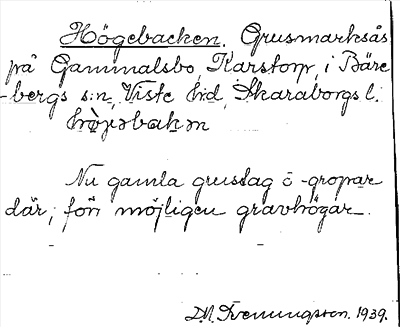 Högebacken. Grusmarksås
på Gammalsbo, Karstorp, i Bäre
-bergs s:n, Viste hd, Skaraborgs l.
Nu gamla grustag o -gropar
där, förr möjligen gravhögar.
1939.